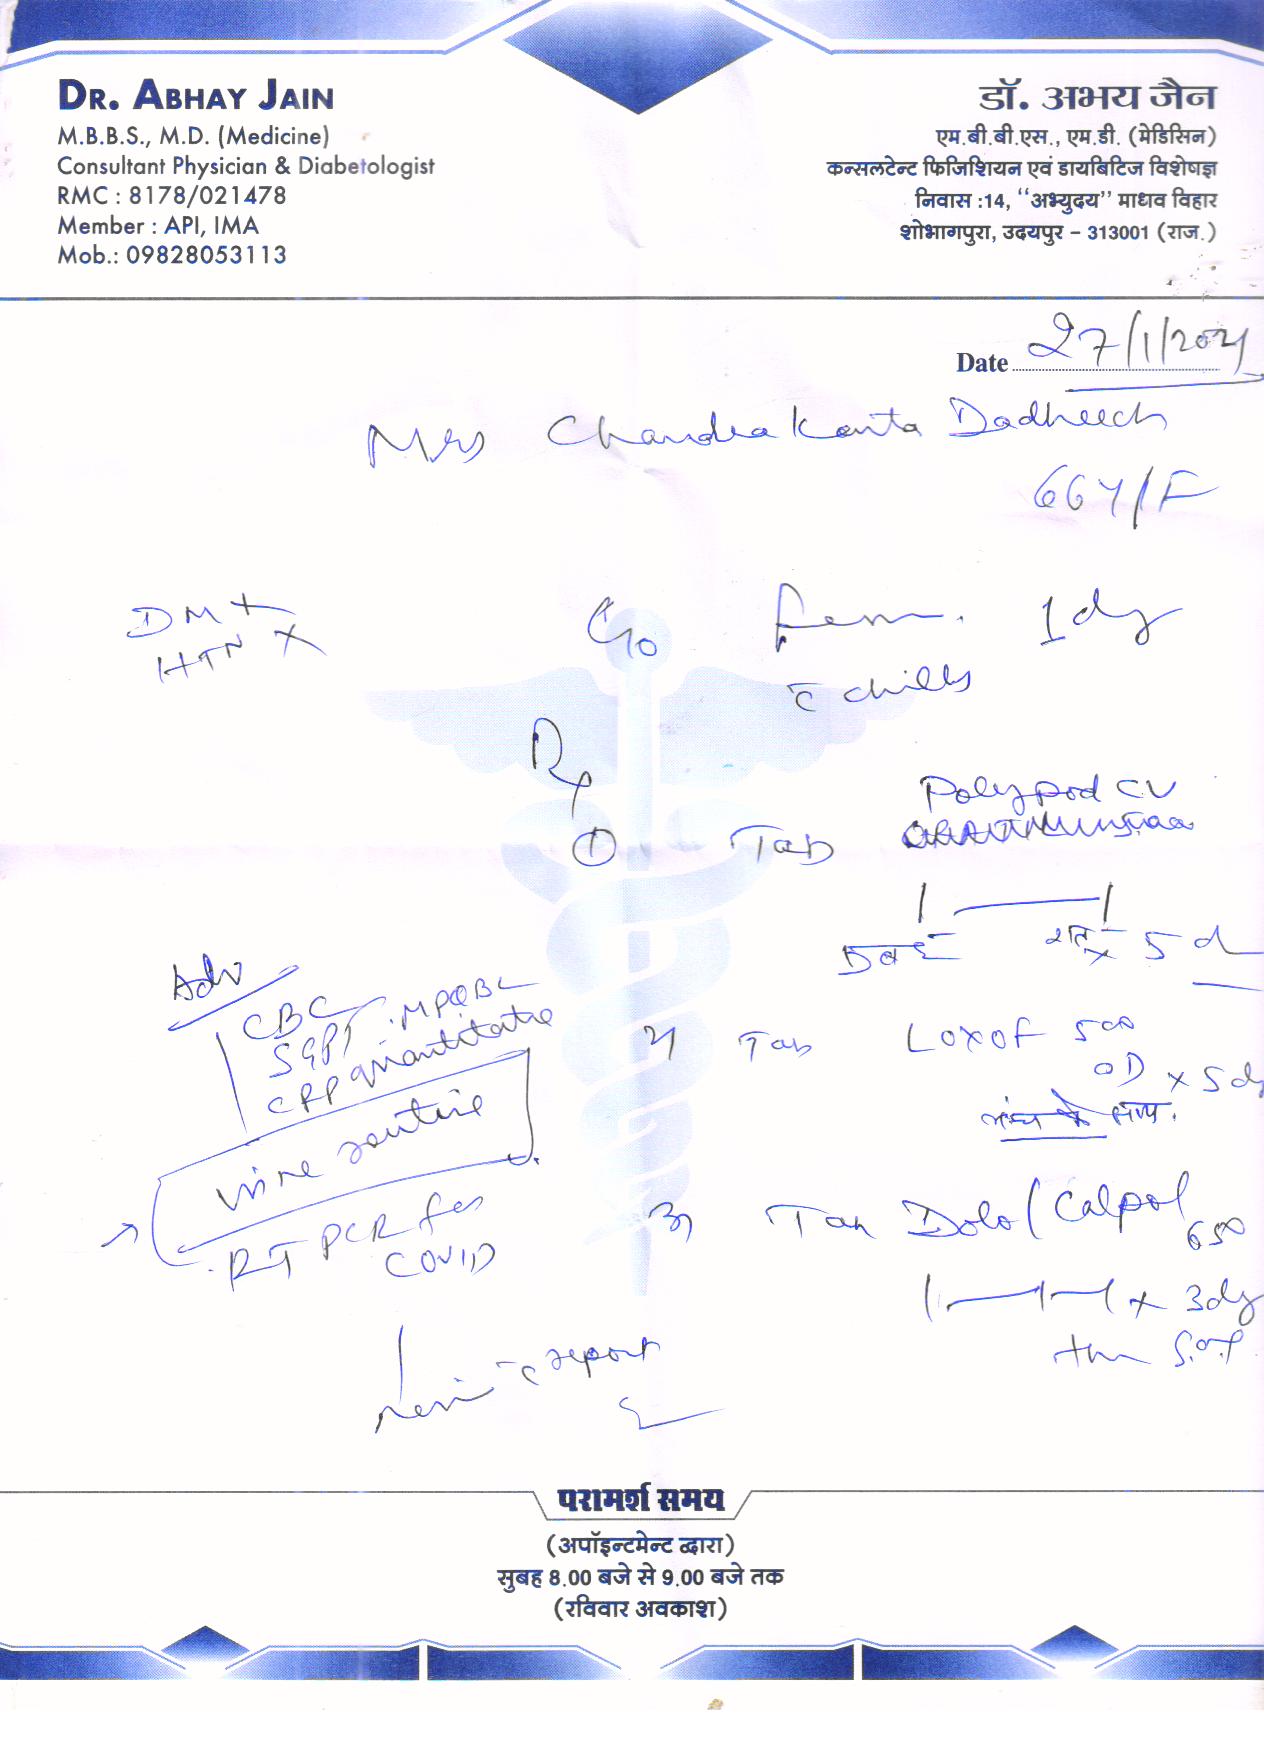 DR. ABHAY JAIN
M.B.B.S., M.D. (Medicine)
Consultant Physician & Diabetologist
RMC : 8178/021478
Member : API, IMA
Mob.: 09828053113
डॉ. अभय जैन
एम.बी.बी.एस., एम.डी. (मेडिसिन)
कन्सलटेन्ट फिजिशियन एवं डायबिटिज विशेषज्ञ
निवास :14, "अभ्युदय" माधव विहार
शोभागपुरा, उदयपुर – 313001 (राज.)
Date 27/1/2021
Mrs Chandra Kanta Dadheech
66Y/F
DM +
HTN
C/o 1 dy
c̄ chills
Rx
① Tab Polypod CV
1 — 1
x 5 d
2) Tab LOXOF 500
OD x 5 dy
3) Tab Dolo / Calpol 650
1 — 1 — 1 x 3 dy
S.O.S
Adv
CBC
SGPT
CRP quantitative
urine routine
RT PCR for
COVID
c̄ report
परामर्श समय
(अपॉइन्टमेन्ट द्वारा)
सुबह 8.00 बजे से 9.00 बजे तक
(रविवार अवकाश)